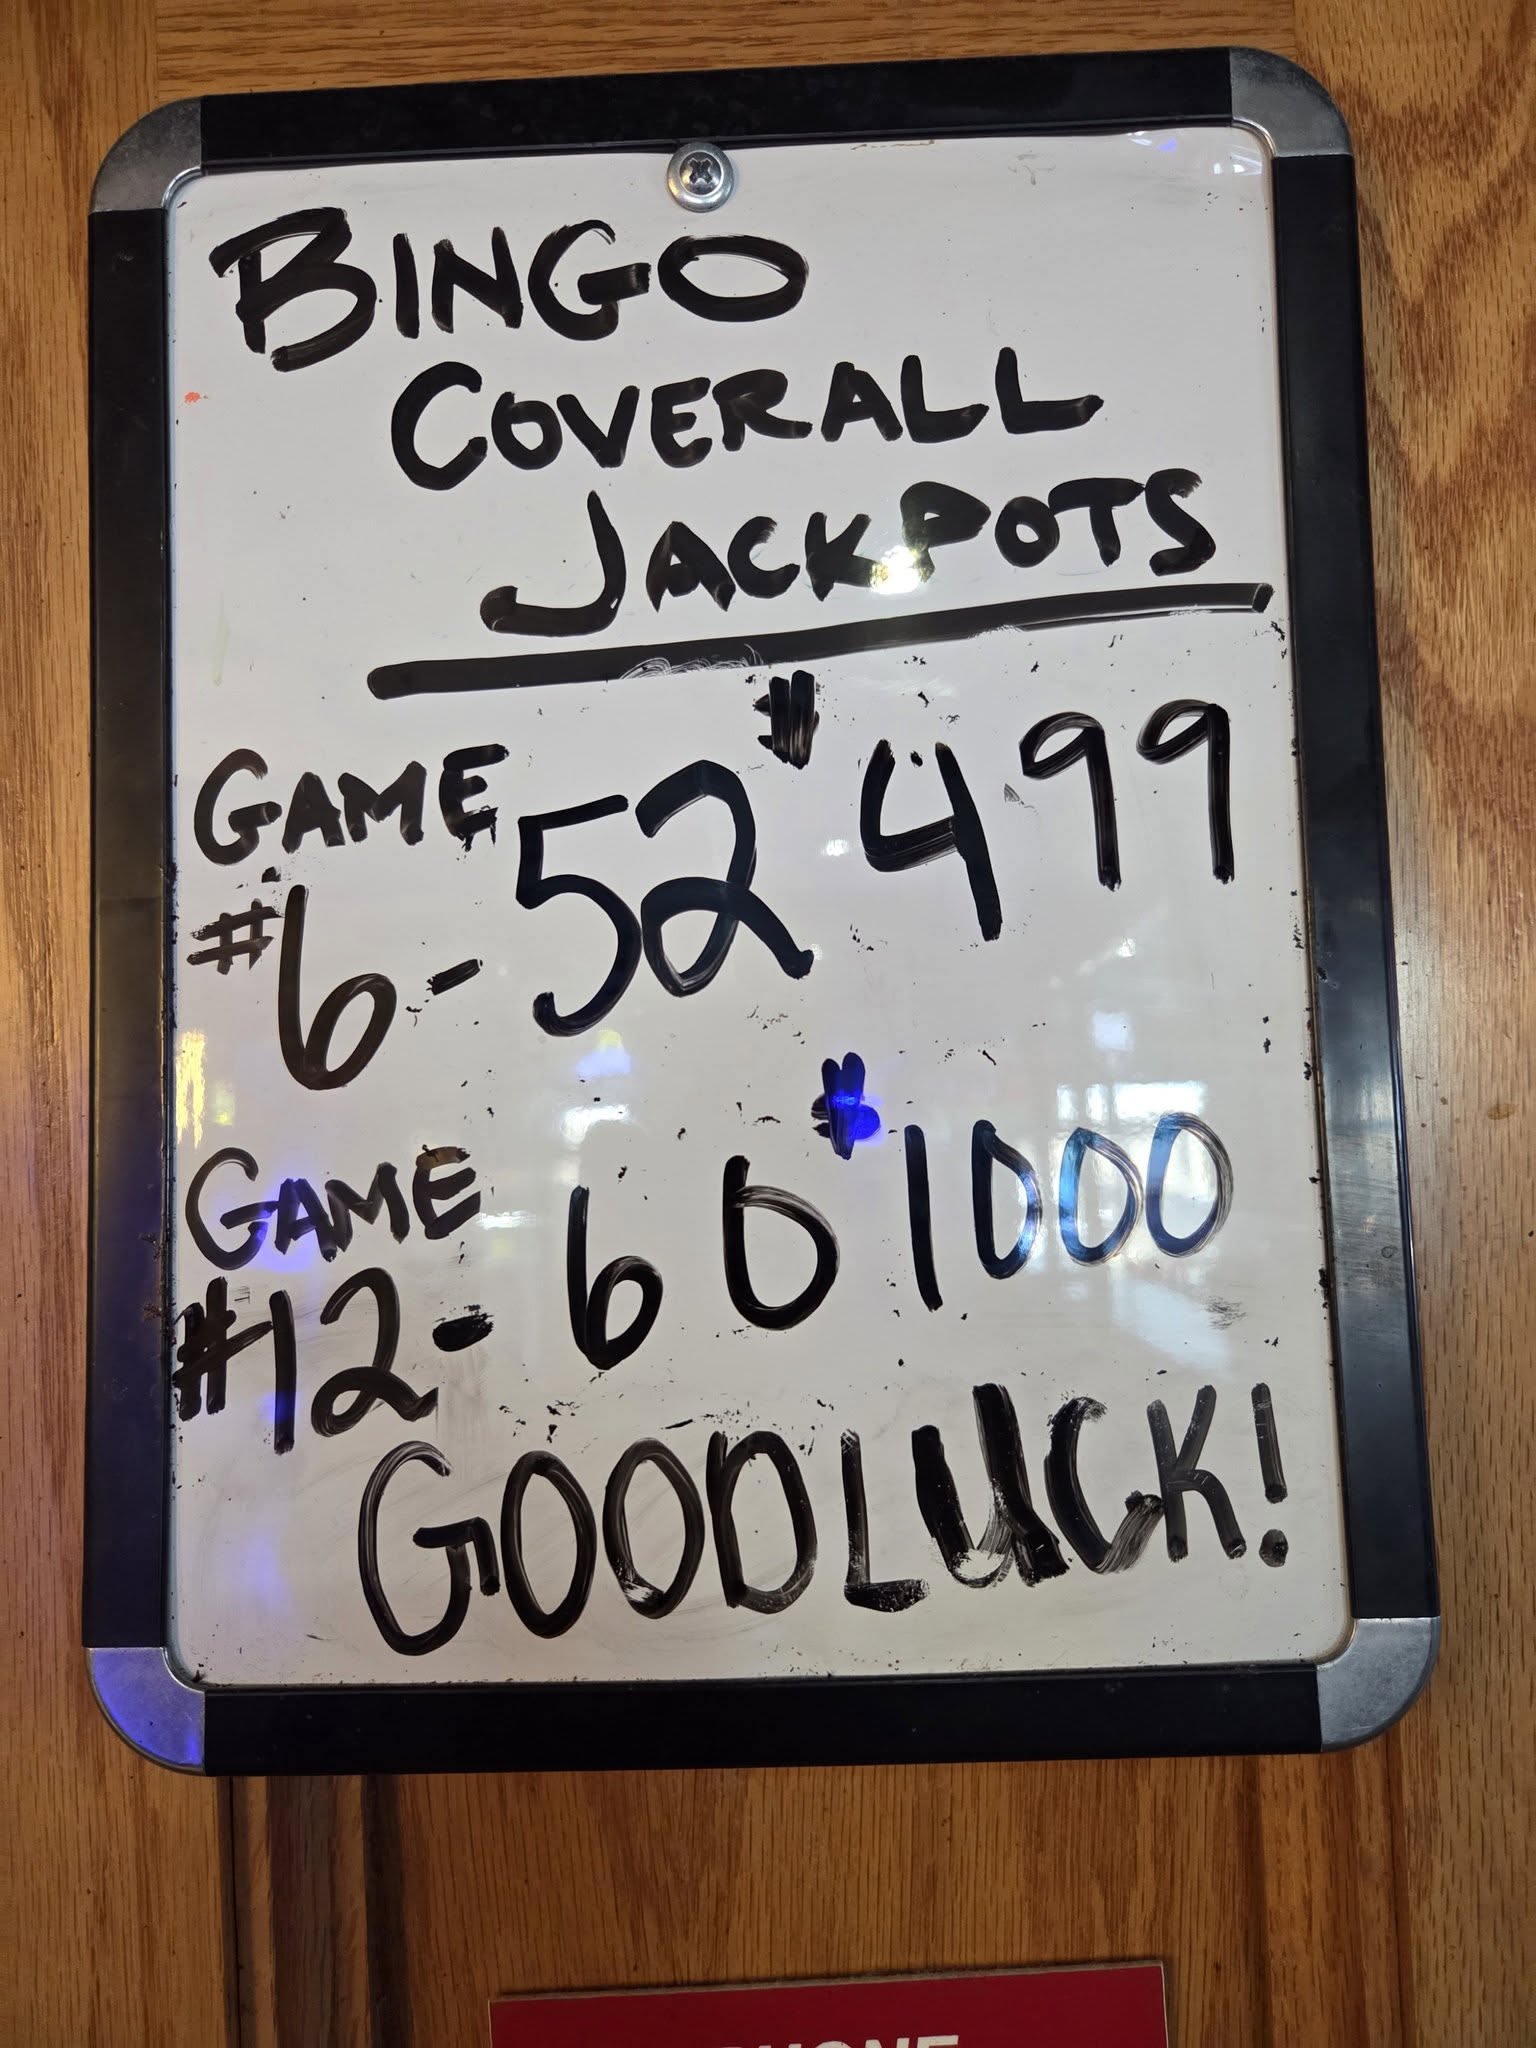 BINGO
COVERALL
JACKPOTS
GAME
#6 - 52 $499
GAME
#12 - 60 $1000
GOOD LUCK!